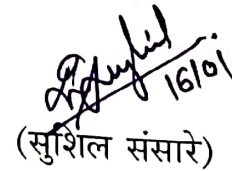 16/01
(सुशिल संसारे)